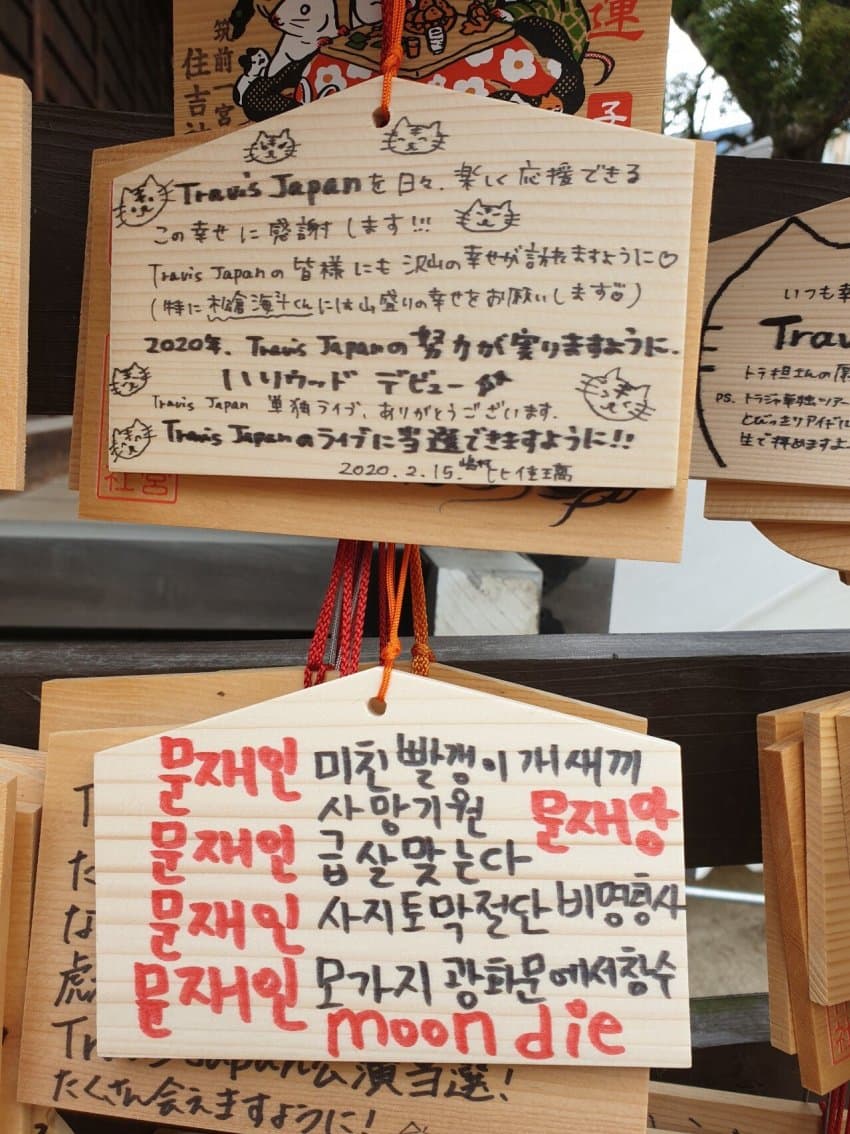 運
筑前一宮
住吉
子
Travis Japanを日々、楽しく応援できる
この幸せに感謝します!!!
Travis Japanの皆様にも沢山の幸せが訪れますように♡
(特に松倉海斗くんには山盛りの幸せをお願いします♡)
2020年、Travis Japanの努力が実りますように.
ハリウッド デビュー
Travis Japan 単独ライブ、ありがとうございます.
Travis Japanのライブに当選できますように!!
2020.2.15.
宮
社
いつも幸
Trav
トラ担さんの
PS. トラジャ単独ツアー
とびっきりアイドルに
生で拝めますよ
문재인 미친 빨갱이 개새끼
사망기원 문재앙
문재인 급살맞는다
문재인 사지토막절단 비명횡사
문재인 모가지 광화문에서창수
moon die
た
な
Travis Japan公演当選!
たくさん会えますように!